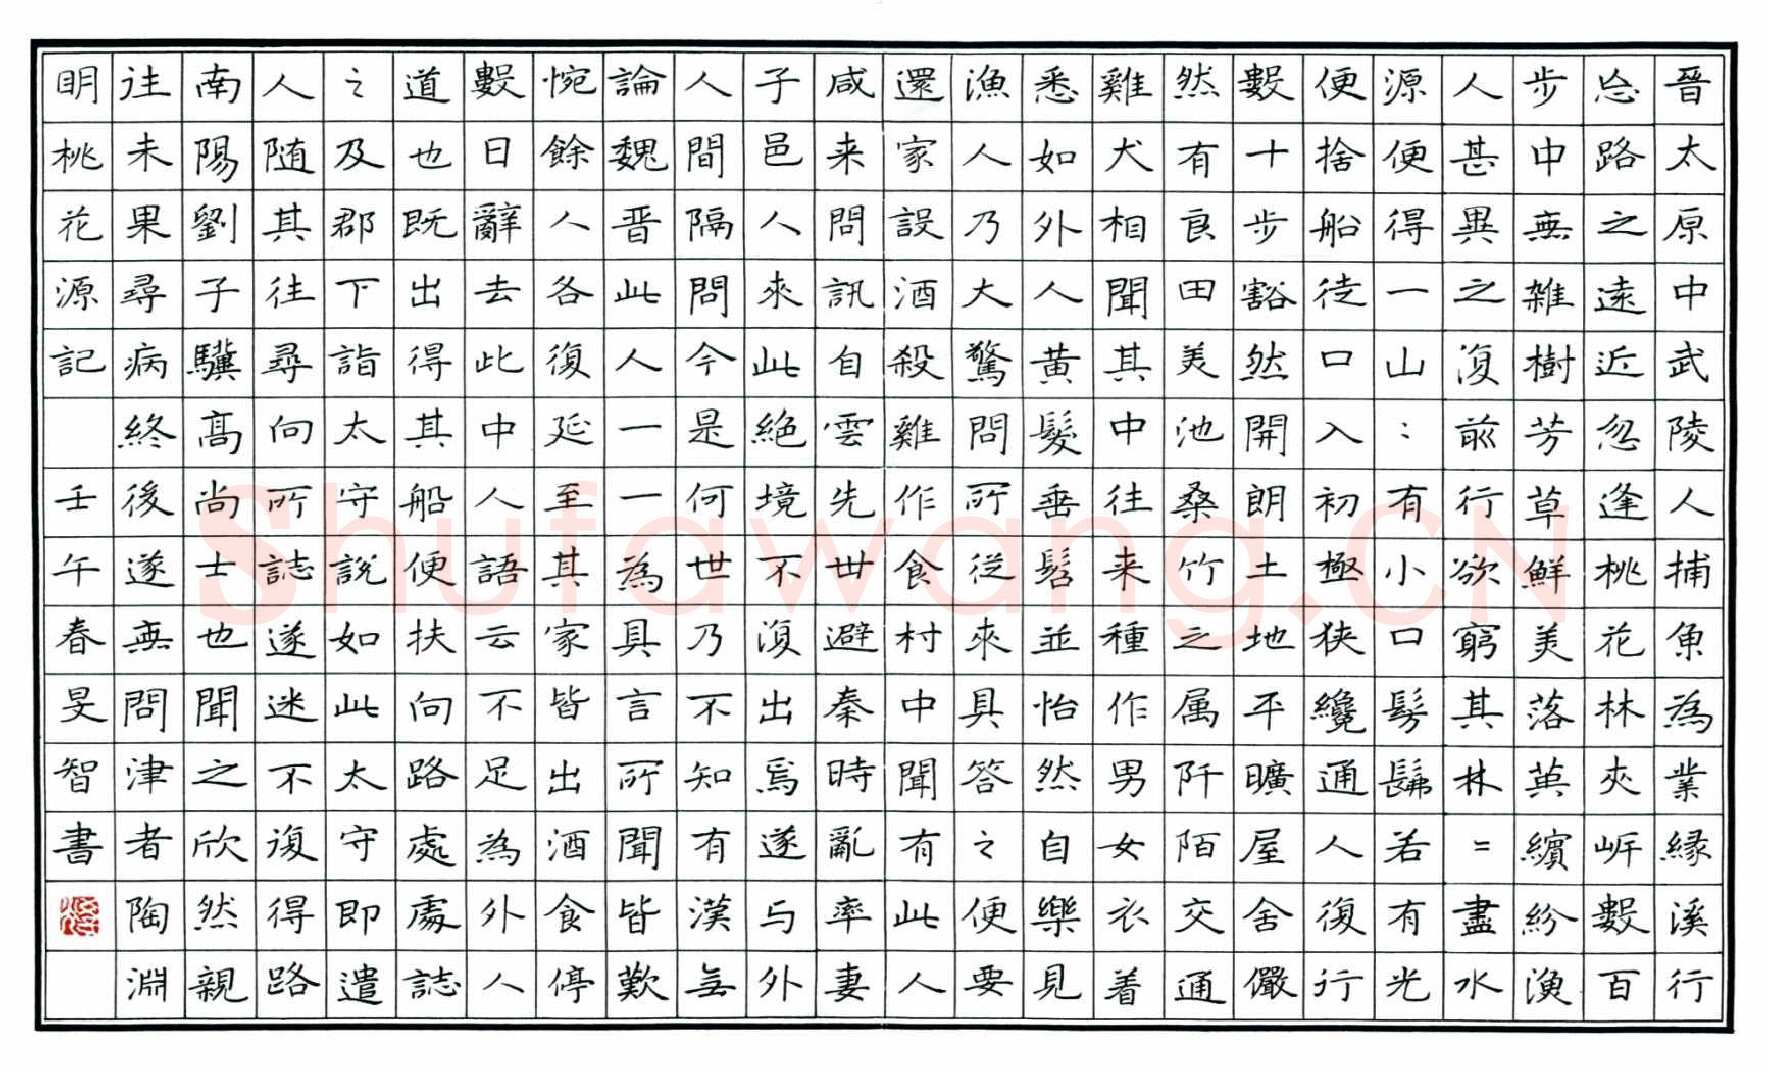 晉太原中武陵人捕魚為業緣溪行
忘路之遠近忽逢桃花林夾岍數百
步中無雜樹芳草鮮美落英繽紛漁
人甚異之復前行欲窮其林=盡水
源便得一山:有小口髣髴若有光
便捨船從口入初極狹纔通人復行
數十步豁然開朗土地平曠屋舍儼
然有良田美池桑竹之属阡陌交通
雞犬相聞其中往来種作男女衣着
悉如外人黄髮垂髫並怡然自樂見
漁人乃大驚問所從來具答之便要
還家設酒殺雞作食村中聞有此人
咸来問訊自雲先世避秦時亂率妻
子邑人來此絕境不復出焉遂与外
人間隔問今是何世乃不知有漢无
論魏晉此人一一為具言所聞皆歎
惋餘人各復延至其家皆出酒食停
數日辭去此中人語云不足為外人
道也既出得其船便扶向路處處誌
之及郡下詣太守說如此太守即遣
人随其往尋向所誌遂迷不復得路
南陽劉子驥高尚士也聞之欣然親
往未果尋病終後遂無問津者陶淵
明桃花源記 壬午春旻智書
Shufawang.CN